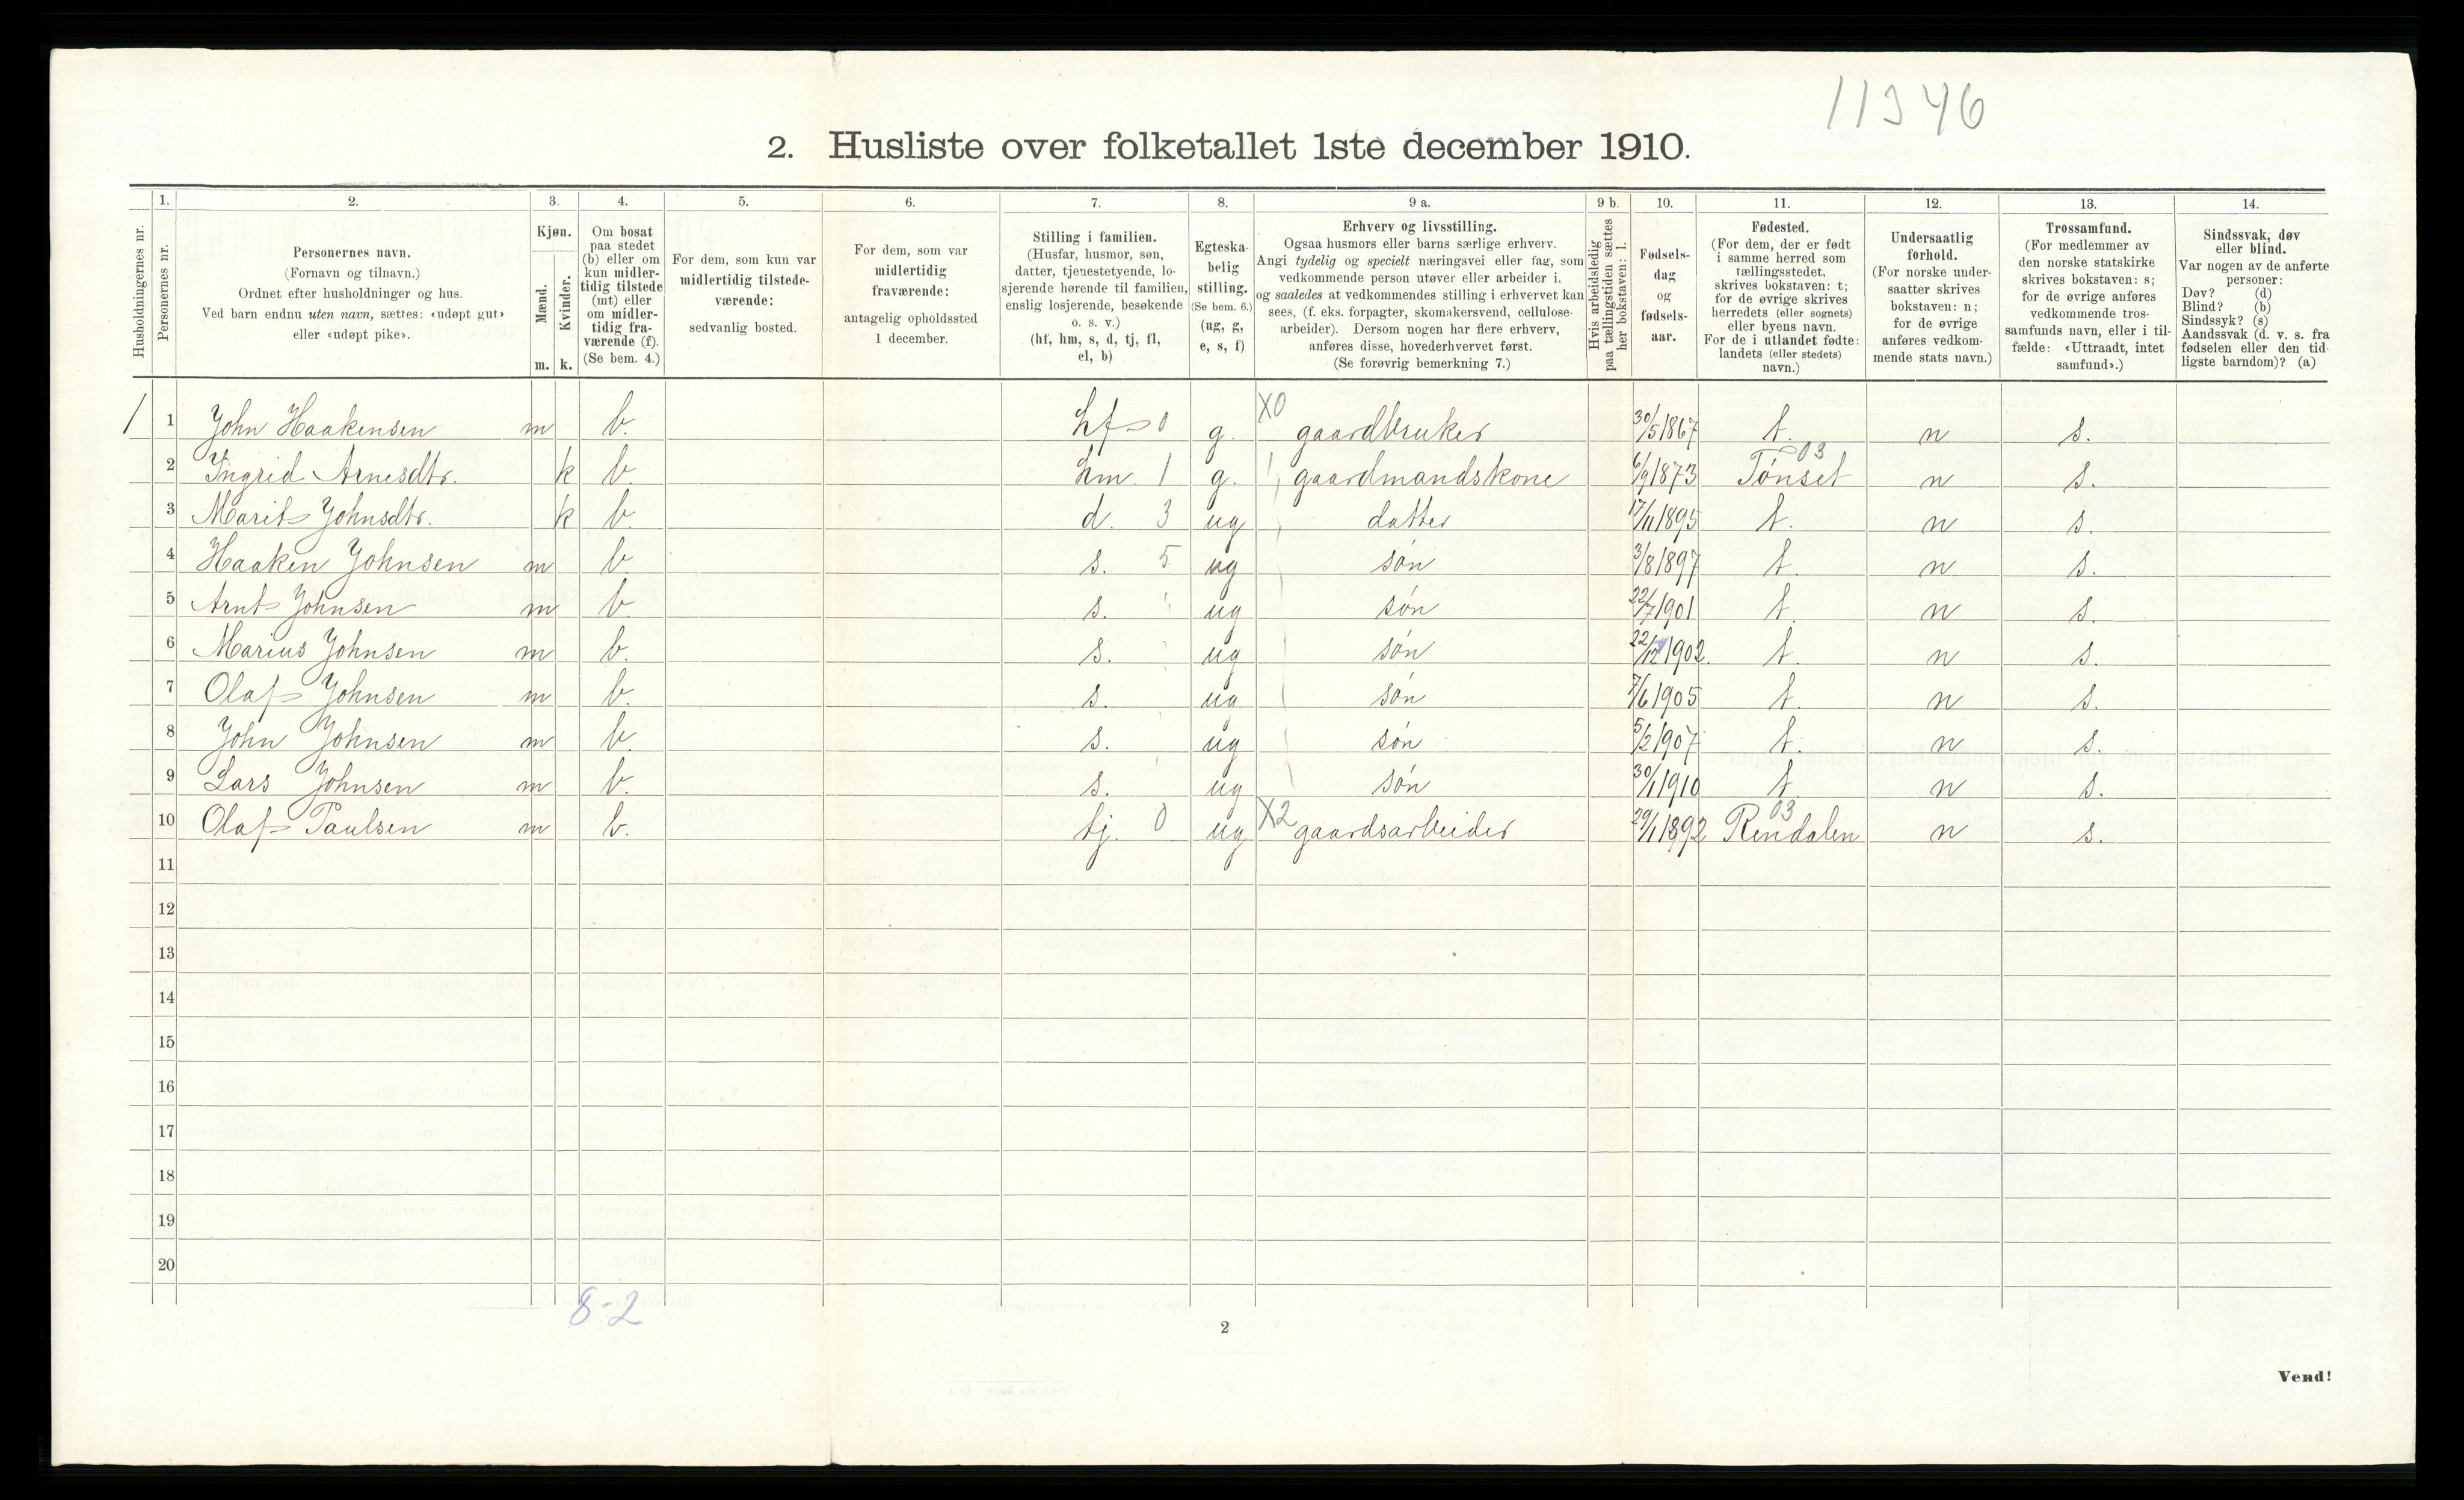 11346
2. Husliste over folketallet 1ste december 1910.
Husholdningernes nr.
1.
Personernes nr.
2.
Personernes navn.
(Fornavn og tilnavn.)
Ordnet efter husholdninger og hus.
Ved barn endnu uten navn, sættes: «udøpt gut»
eller «udøpt pike».
3.
Kjøn.
Mænd.
m.
Kvinder.
k.
4.
Om bosat
paa stedet
(b) eller om
kun midler-
tidig tilstede
(mt) eller
om midler-
tidig fra-
værende (f).
(Se bem. 4.)
5.
For dem, som kun var
midlertidig tilstede-
værende:
sedvanlig bosted.
6.
For dem, som var
midlertidig
fraværende:
antagelig opholdssted
1 december.
7.
Stilling i familien.
(Husfar, husmor, søn,
datter, tjenestetyende, lo-
sjerende hørende til familien,
enslig losjerende, besøkende
o. s. v.)
(hf, hm, s, d, tj, fl,
el, b)
8.
Egteska-
belig
stilling.
(Se bem. 6.)
(ug, g,
e, s, f)
9 a.
Erhverv og livsstilling.
Ogsaa husmors eller barns særlige erhverv.
Angi tydelig og specielt næringsvei eller fag, som
vedkommende person utøver eller arbeider i,
og saaledes at vedkommendes stilling i erhvervet kan
sees, (f. eks. forpagter, skomakersvend, cellulose-
arbeider). Dersom nogen har flere erhverv,
anføres disse, hovederhvervet først.
(Se forøvrig bemerkning 7.)
9 b.
Hvis arbeidsledig
paa tællingstiden sættes
her bokstaven: l.
10.
Fødsels-
dag
og
fødsels-
aar.
11.
Fødested.
(For dem, der er født
i samme herred som
tællingsstedet,
skrives bokstaven: t;
for de øvrige skrives
herredets (eller sognets)
eller byens navn.
For de i utlandet fødte:
landets (eller stedets)
navn.)
12.
Undersaatlig
forhold.
(For norske under-
saatter skrives
bokstaven: n;
for de øvrige
anføres vedkom-
mende stats navn.)
13.
Trossamfund.
(For medlemmer av
den norske statskirke
skrives bokstaven: s;
for de øvrige anføres
vedkommende tros-
samfunds navn, eller i til-
fælde: «Uttraadt, intet
samfund».)
14.
Sindssvak, døv
eller blind.
Var nogen av de anførte
personer:
Døv? (d)
Blind? (b)
Sindssyk? (s)
Aandssvak (d. v. s. fra
fødselen eller den tid-
ligste barndom)? (a)
1 1 John Haakensen m b. hf 0 g. X0 gaardbruker 30/5 1867 t. n s.
2 Ingrid Arnesdtr. k b. hm. 1 g. gaardmandskone 6/9 1873 Tønset 03 n s.
3 Marit Johnsdtr. k b. d. 3 ug datter 17/11 1895 t. n s.
4 Haaken Johnsen m b. s. 5 ug søn 3/8 1897 t. n s.
5 Arnt Johnsen m b. s. ug søn 22/7 1901 t. n s.
6 Marius Johnsen m b. s. ug søn 22/12 1902. t. n s.
7 Olaf Johnsen m b. s. ug søn 7/6 1905 t. n s.
8 John Johnsen m b. s. ug søn 5/2 1907 t. n s.
9 Lars Johnsen m b. s. ug søn 30/1 1910 t. n s.
10 Olaf Paulsen m b. tj. 0 ug X2 gaardsarbeider 29/1 1892 Rendalen 03 n s.
11
12
13
14
15
16
17
18
19
20
8-2
2
Vend!